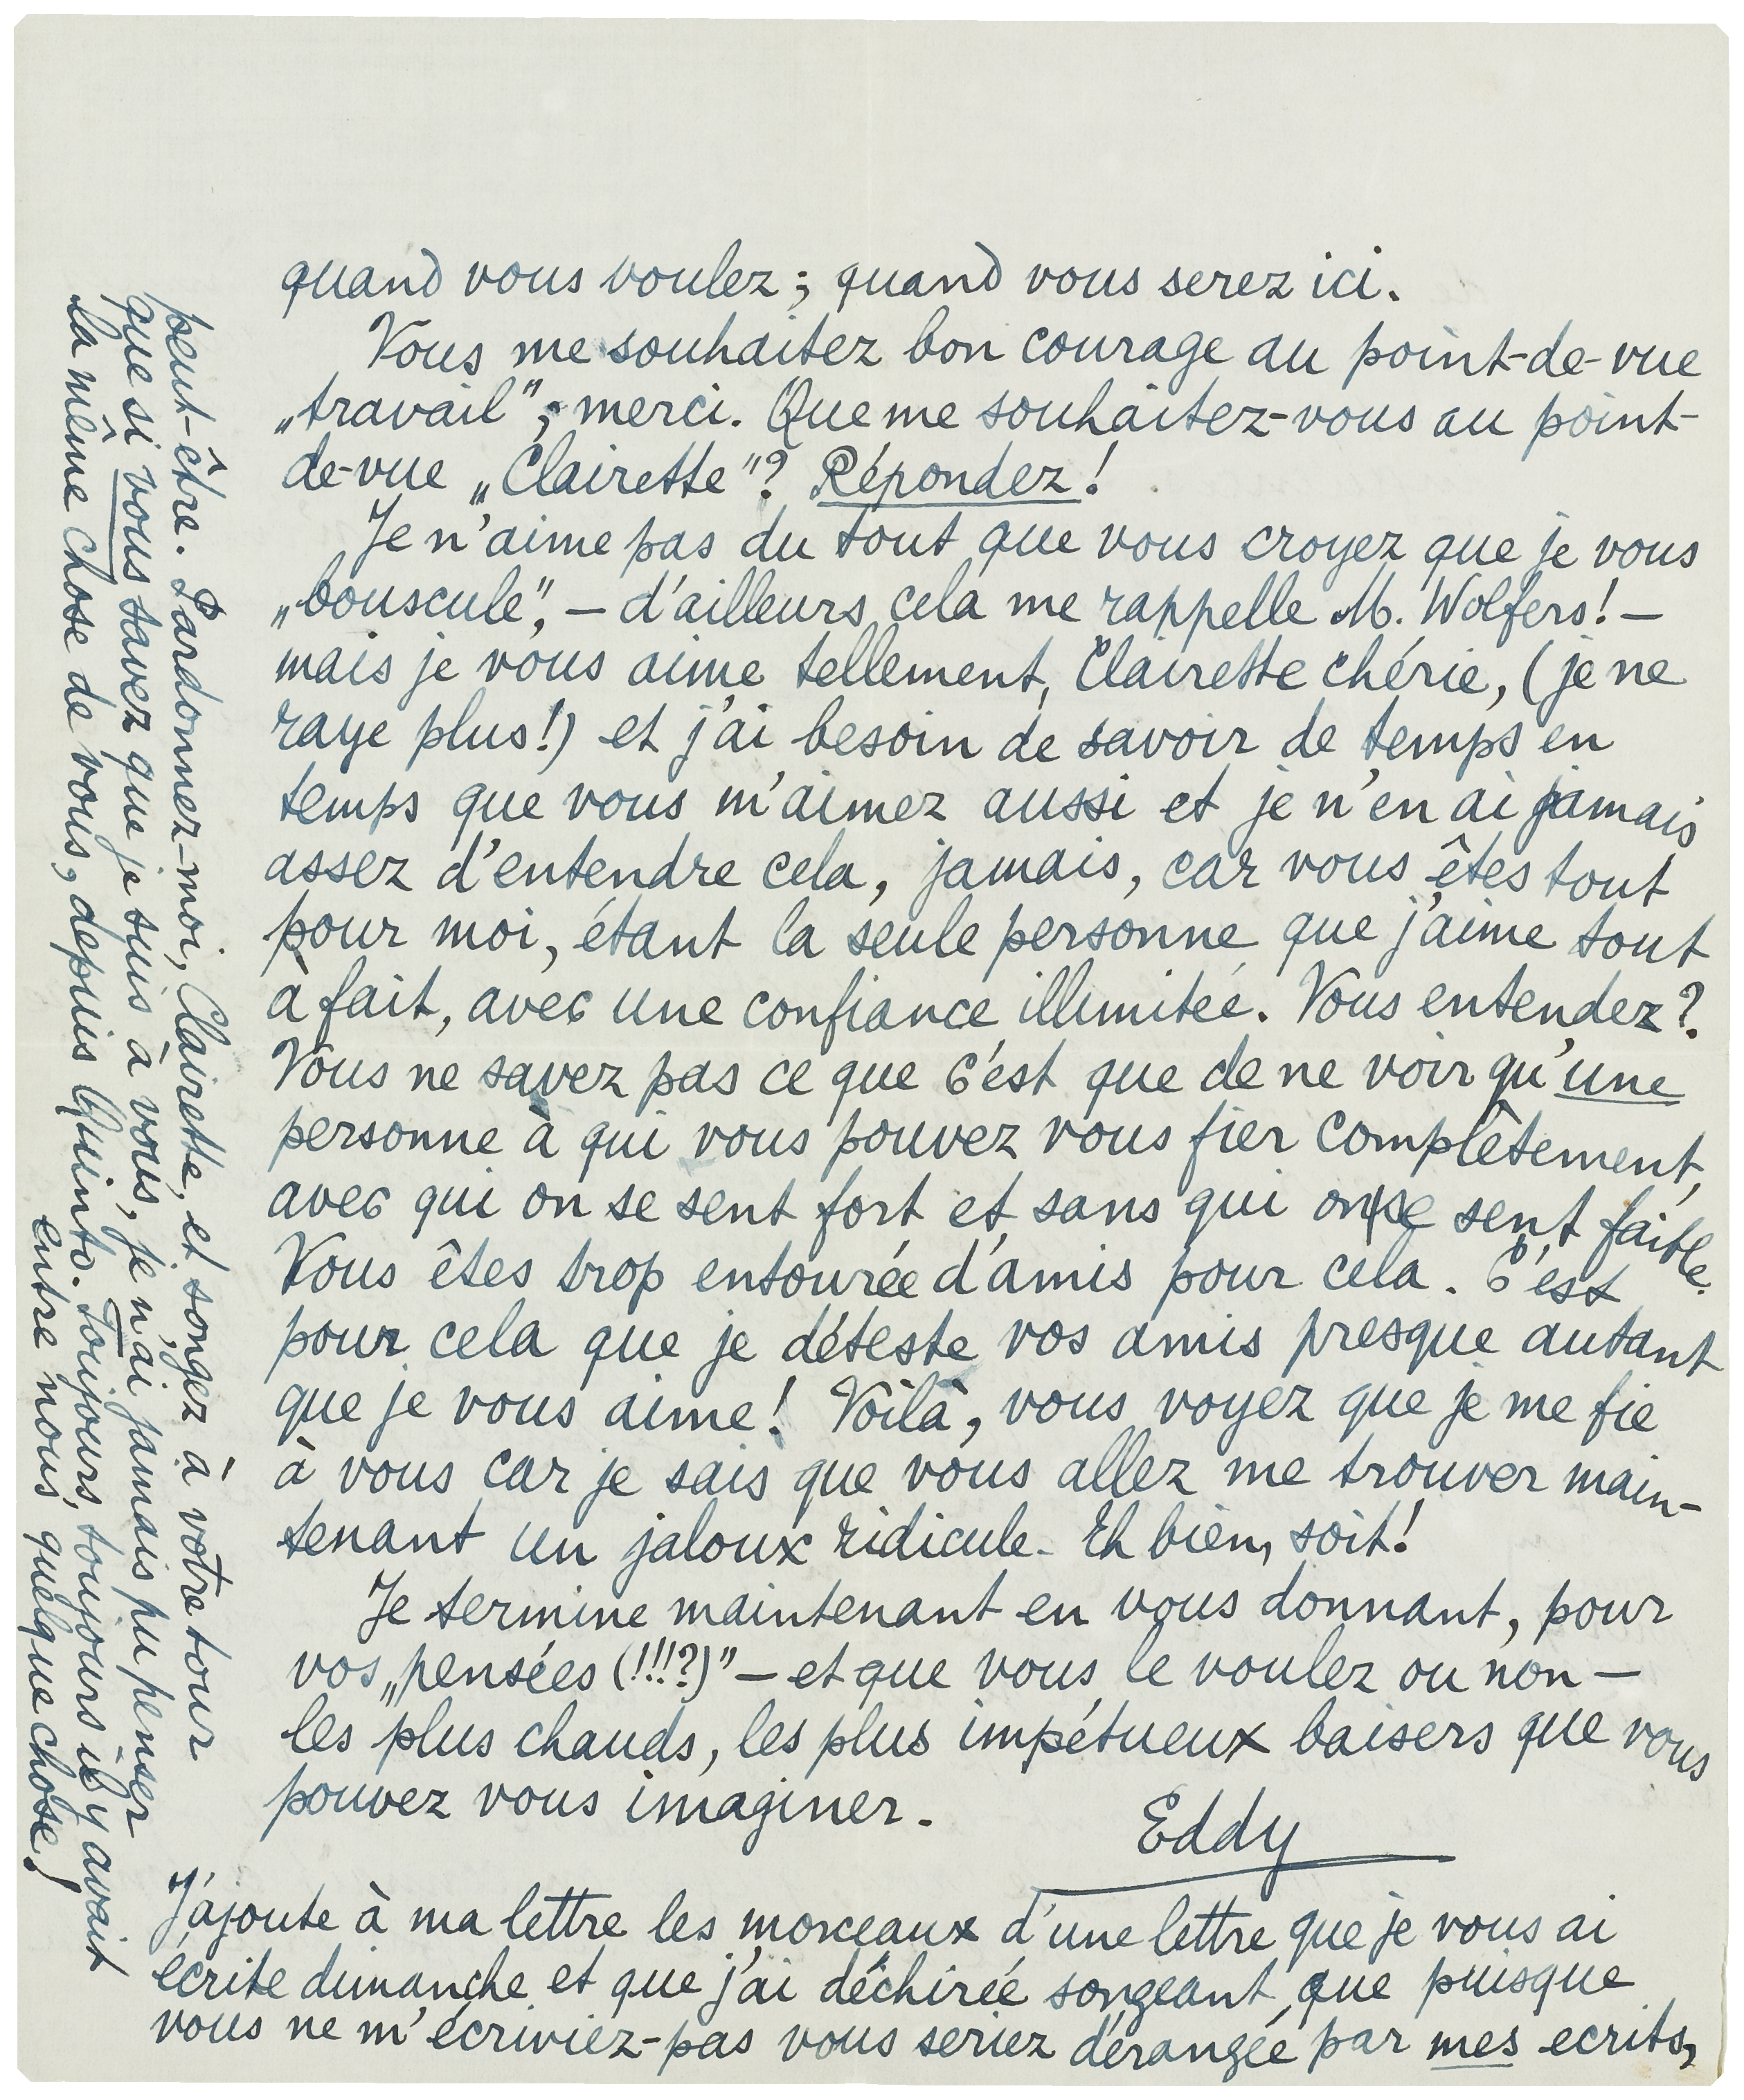 quand vous voulez; quand vous serez ici.
Vous me souhaitez bon courage au point-de-vue
„travail”; merci. Que me souhaitez-vous au point-
de-vue „Clairette”? Répondez!
Je n'aime pas du tout que vous croyez que je vous
„bouscule”, — d'ailleurs cela me rappelle M. Wolfers! —
mais je vous aime tellement, Clairette chérie, (je ne
raye plus!) et j'ai besoin de savoir de temps en
temps que vous m'aimez aussi et je n'en ai jamais
assez d'entendre cela, jamais, car vous êtes tout
pour moi, étant la seule personne que j'aime tout
à fait, avec une confiance illimitée. Vous entendez?
Vous ne savez pas ce que c'est que de ne voir qu'une
personne à qui vous pouvez vous fier complêtement,
avec qui on se sent fort et sans qui on se sent faible.
Vous êtes trop entourée d'amis pour cela. C'est
pour cela que je déteste vos amis presque autant
que je vous aime! Voilà, vous voyez que je me fie
à vous car je sais que vous allez me trouver main-
tenant un jaloux ridicule. Eh bien, soit!
Je termine maintenant en vous donnant, pour
vos „pensées (!!!?)” — et que vous le voulez ou non —
les plus chauds, les plus impétueux baisers que vous
pouvez vous imaginer.
Eddy
J'ajoute à ma lettre les morceaux d'une lettre que je vous ai
écrite dimanche et que j'ai déchirée songeant que puisque
vous ne m'écriviez-pas vous seriez dérangée par mes ecrits,
peut-être. Pardonnez-moi, Clairette, et songez à votre tour
que si vous savez que je suis à vous, je n'ai jamais pu penser
la même chose de vous, depuis Quinto. Toujours, toujours il y avait
entre nous quelque chose!